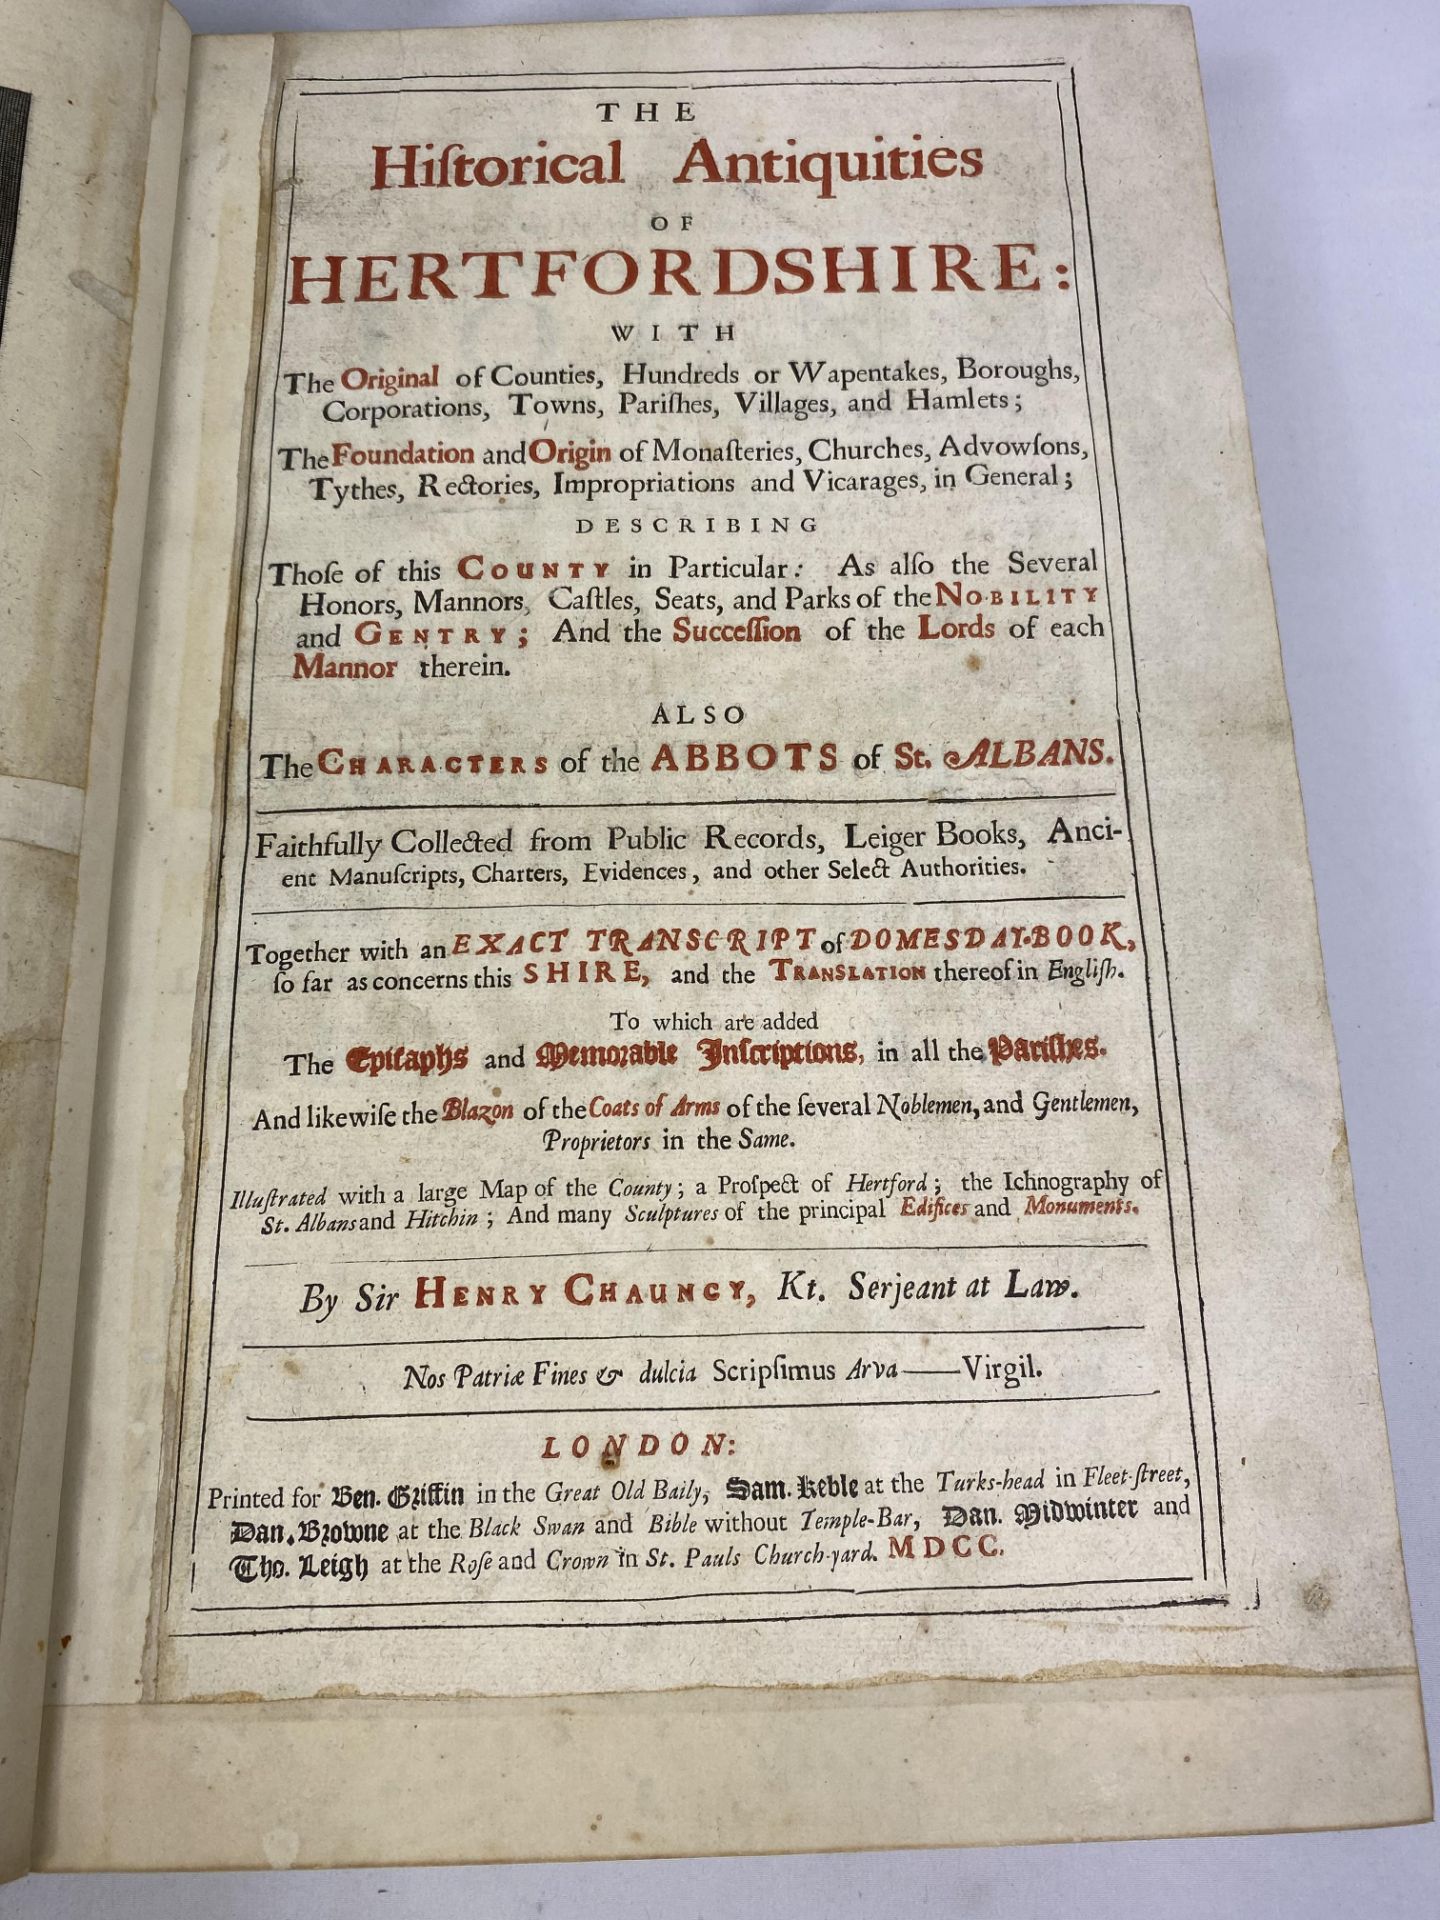 THE
Hiſtorical Antiquities
OF
HERTFORDSHIRE:
WITH
The Original of Counties, Hundreds or Wapentakes, Boroughs,
Corporations, Towns, Pariſhes, Villages, and Hamlets;
The Foundation and Origin of Monaſteries, Churches, Advowſons,
Tythes, Rectories, Impropriations and Vicarages, in General;
DESCRIBING
Thoſe of this COUNTY in Particular: As alſo the Several
Honors, Mannors, Caſtles, Seats, and Parks of the NOBILITY
and GENTRY; And the Succeſſion of the Lords of each
Mannor therein.
ALSO
The CHARACTERS of the ABBOTS of St. ALBANS.
Faithfully Collected from Public Records, Leiger Books, Anci-
ent Manuſcripts, Charters, Evidences, and other Select Authorities.
Together with an EXACT TRANSCRIPT of DOMESDAY-BOOK,
ſo far as concerns this SHIRE, and the TRANSLATION thereof in Engliſh.
To which are added
The Epitaphs and Memorable Inſcriptions, in all the Pariſhes.
And likewiſe the Blazon of the Coats of Arms of the ſeveral Noblemen, and Gentlemen,
Proprietors in the Same.
Illuſtrated with a large Map of the County; a Proſpect of Hertford; the Ichnography of
St. Albans and Hitchin; And many Sculptures of the principal Edifices and Monuments.
By Sir HENRY CHAUNCY, Kt. Serjeant at Law.
Nos Patriæ Fines & dulcia Scripſimus Arva——Virgil.
LONDON:
Printed for Ben. Griffin in the Great Old Baily, Sam. Keble at the Turks-head in Fleet-ſtreet,
Dan. Browne at the Black Swan and Bible without Temple-Bar, Dan. Midwinter and
Tho. Leigh at the Roſe and Crown in St. Pauls Church-yard. MDCC.